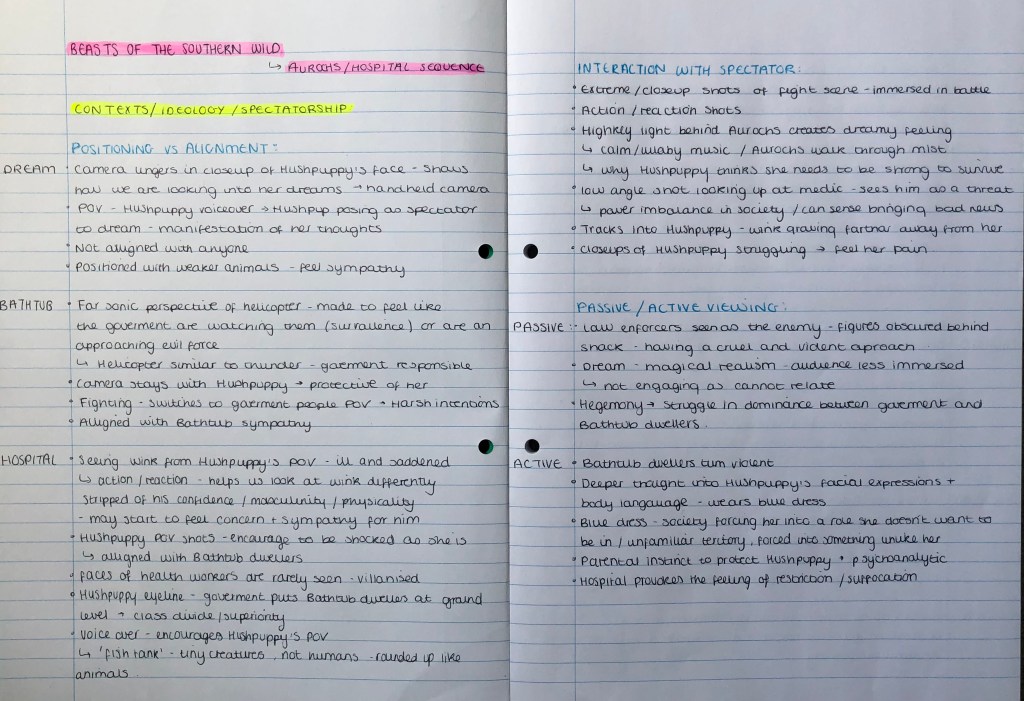 BEASTS OF THE SOUTHERN WILD
↳ AUROCHS/HOSPITAL SEQUENCE
CONTEXTS/IDEOLOGY/SPECTATORSHIP:
POSITIONING VS ALIGNMENT:
DREAM • Camera lingers in closeup of Hushpuppy's face - shows
how we are looking into her dreams → handheld camera
• POV - Hushpuppy voiceover → Hushpup posing as spectator
to dream - manifestation of her thoughts
• Not aligned with anyone
• Positioned with weaker animals - feel sympathy
BATHTUB • Far sonic perspective of helicopter - made to feel like
the goverment are watching them (surrailence) or are an
approaching evil force
↳ Helicopter similar to thunder - goverment responsible
• Camera stays with Hushpuppy → protective of her
• Fighting - switches to goverment people POV → Harsh intentions
• Alligned with Bathtub sympathy
HOSPITAL • Seeing wink from Hushpuppy's POV - ill and saddened
↳ action/reaction - helps us look at wink differently
stripped of his confidence / masculinity / physicality
- may start to feel concern + sympathy for him
• Hushpuppy POV shots - encourage to be shocked as she is
↳ alligned with Bathtub dwellers
• faces of health workers are rarely seen - villanised
• Hushpuppy eyeline - goverment puts Bathtub dwelles at ground
level → class divide/superiority
• voice over - encourages Hushpuppy's POV
↳ 'fish tank' - tiny creatures, not humans - rounded up like
animals.
INTERACTION WITH SPECTATOR:
• Extreme/closeup shots of fight scene - immersed in battle
• Action/reaction shots
• Highkey light behind Aurochs creates dreamy feeling
↳ calm/lullaby music / Aurochs walk through mist
↳ why Hushpuppy thinks she needs to be strong to survive
• low angle shot looking up at medic - sees him as a threat
↳ power imbalance in society / can sense bringing bad news
• Tracks into Hushpuppy - wink growing farther away from her
• Closeups of Hushpuppy struggling → feel her pain
PASSIVE/ACTIVE VIEWING:
PASSIVE: • Law enforcers seen as the enemy - figures obscured behind
shack - having a cruel and violent aproach
• Dream - magical realism - audience less immersed
↳ not engaging as cannot relate
• Hegemony → struggle in dominance between goverment and
Bathtub dwellers.
ACTIVE • Bathtub dwellers turn violent
• Deeper thought into Hushpuppy's facial expressions +
body langauage - wears blue dress
• Blue dress - society forcing her into a role she doesn't want to
be in / unfamiliar territory, forced into something unlike her
• Parental instinct to protect Hushpuppy • psycroanalytic
• Hospital provides the feeling of restriction / suffocation